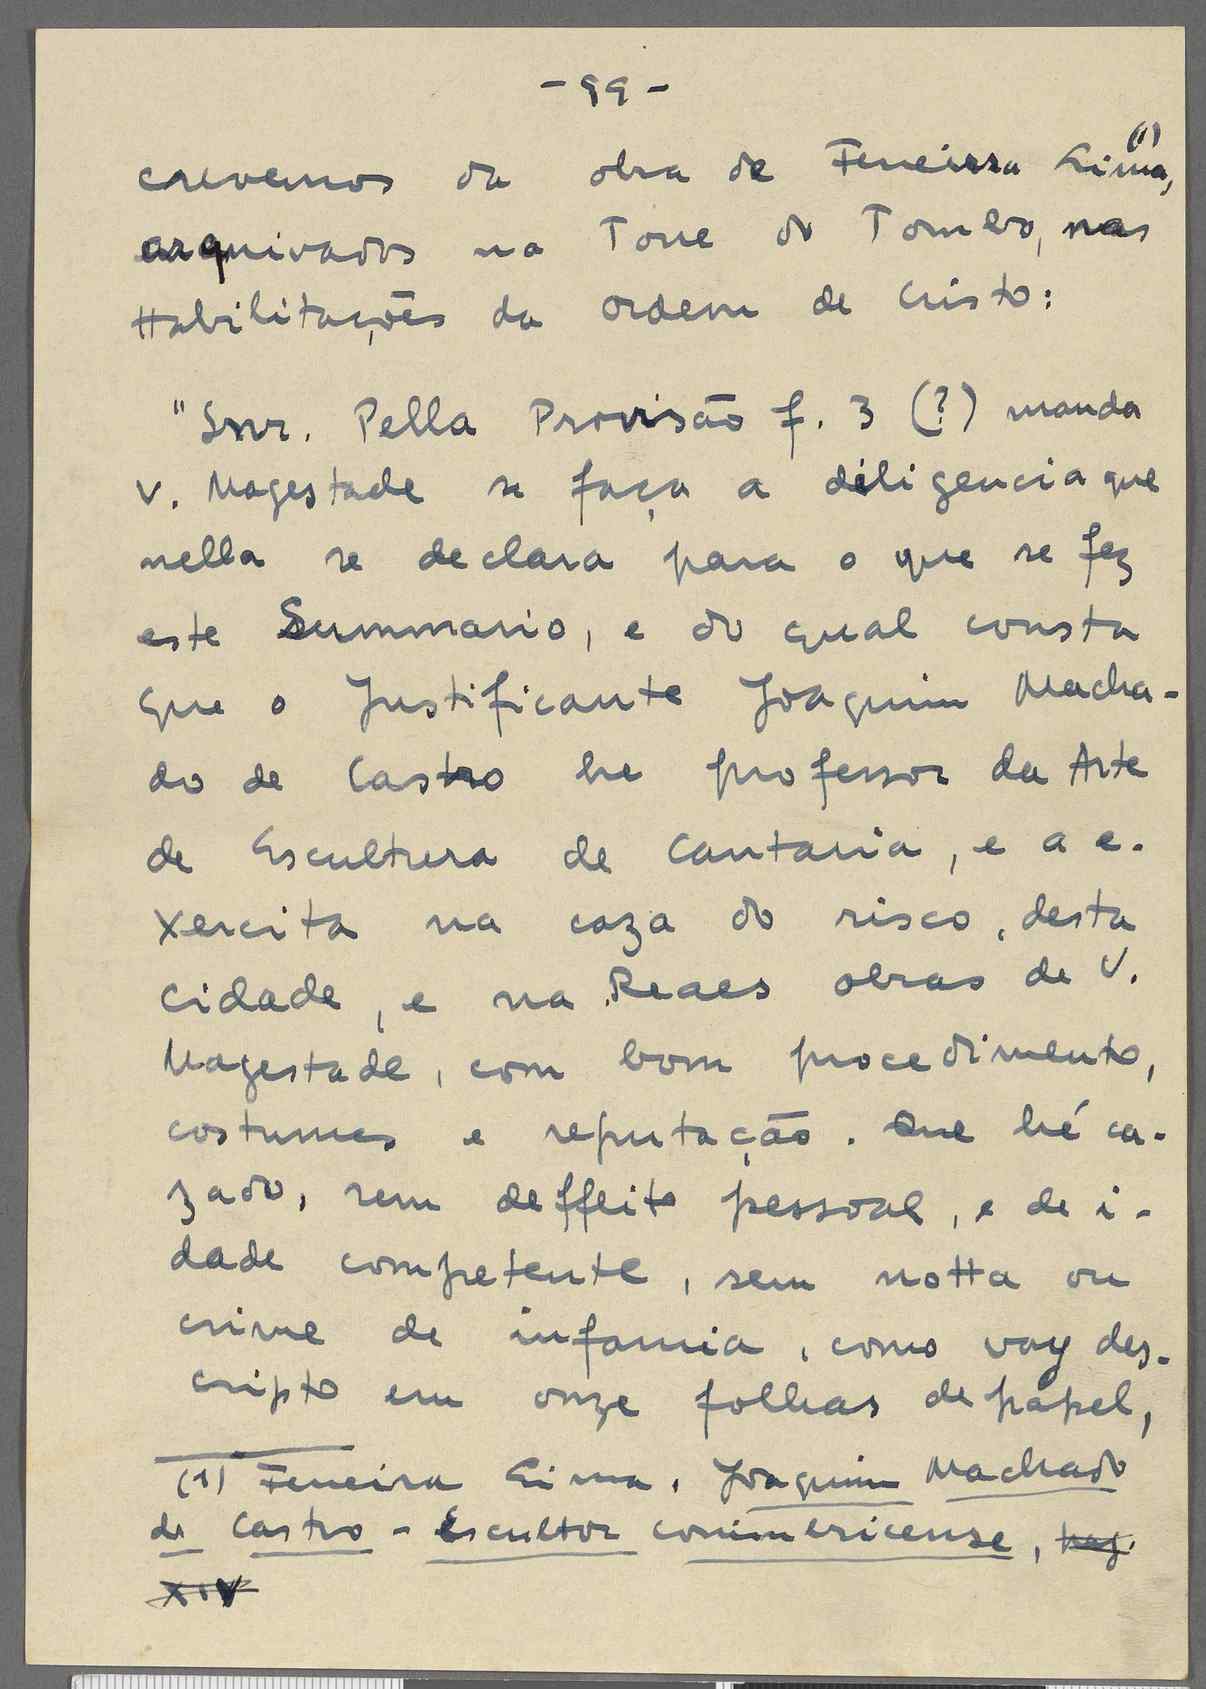 - 99 -
crevemos da obra de Ferreira Lima, (1)
arquivados na Torre do Tombo, nas
Habilitações da Ordem de Cristo:
"Snr. Pella Provisão f. 3 (?) manda
V. Magestade se faça a diligencia que
nella se declara para o que se fez
este Summario, e do qual consta
que o Justificante Joaquim Macha-
do de Castro he professor da Arte
de Escultura de Cantaria, e a e-
xercita na caza do risco, desta
cidade, e na Reaes obras de V.
Magestade, com bom procedimento,
costumes e reputação. Que hé ca-
zado, sem deffeito pessoal, e de i-
dade competente, sem notta ou
crime de infamia, como vay des-
cripto em onze folhas de papel,
(1) Ferreira Lima, Joaquim Machado
de Castro - Escultor conimbricense, pag.
XIV